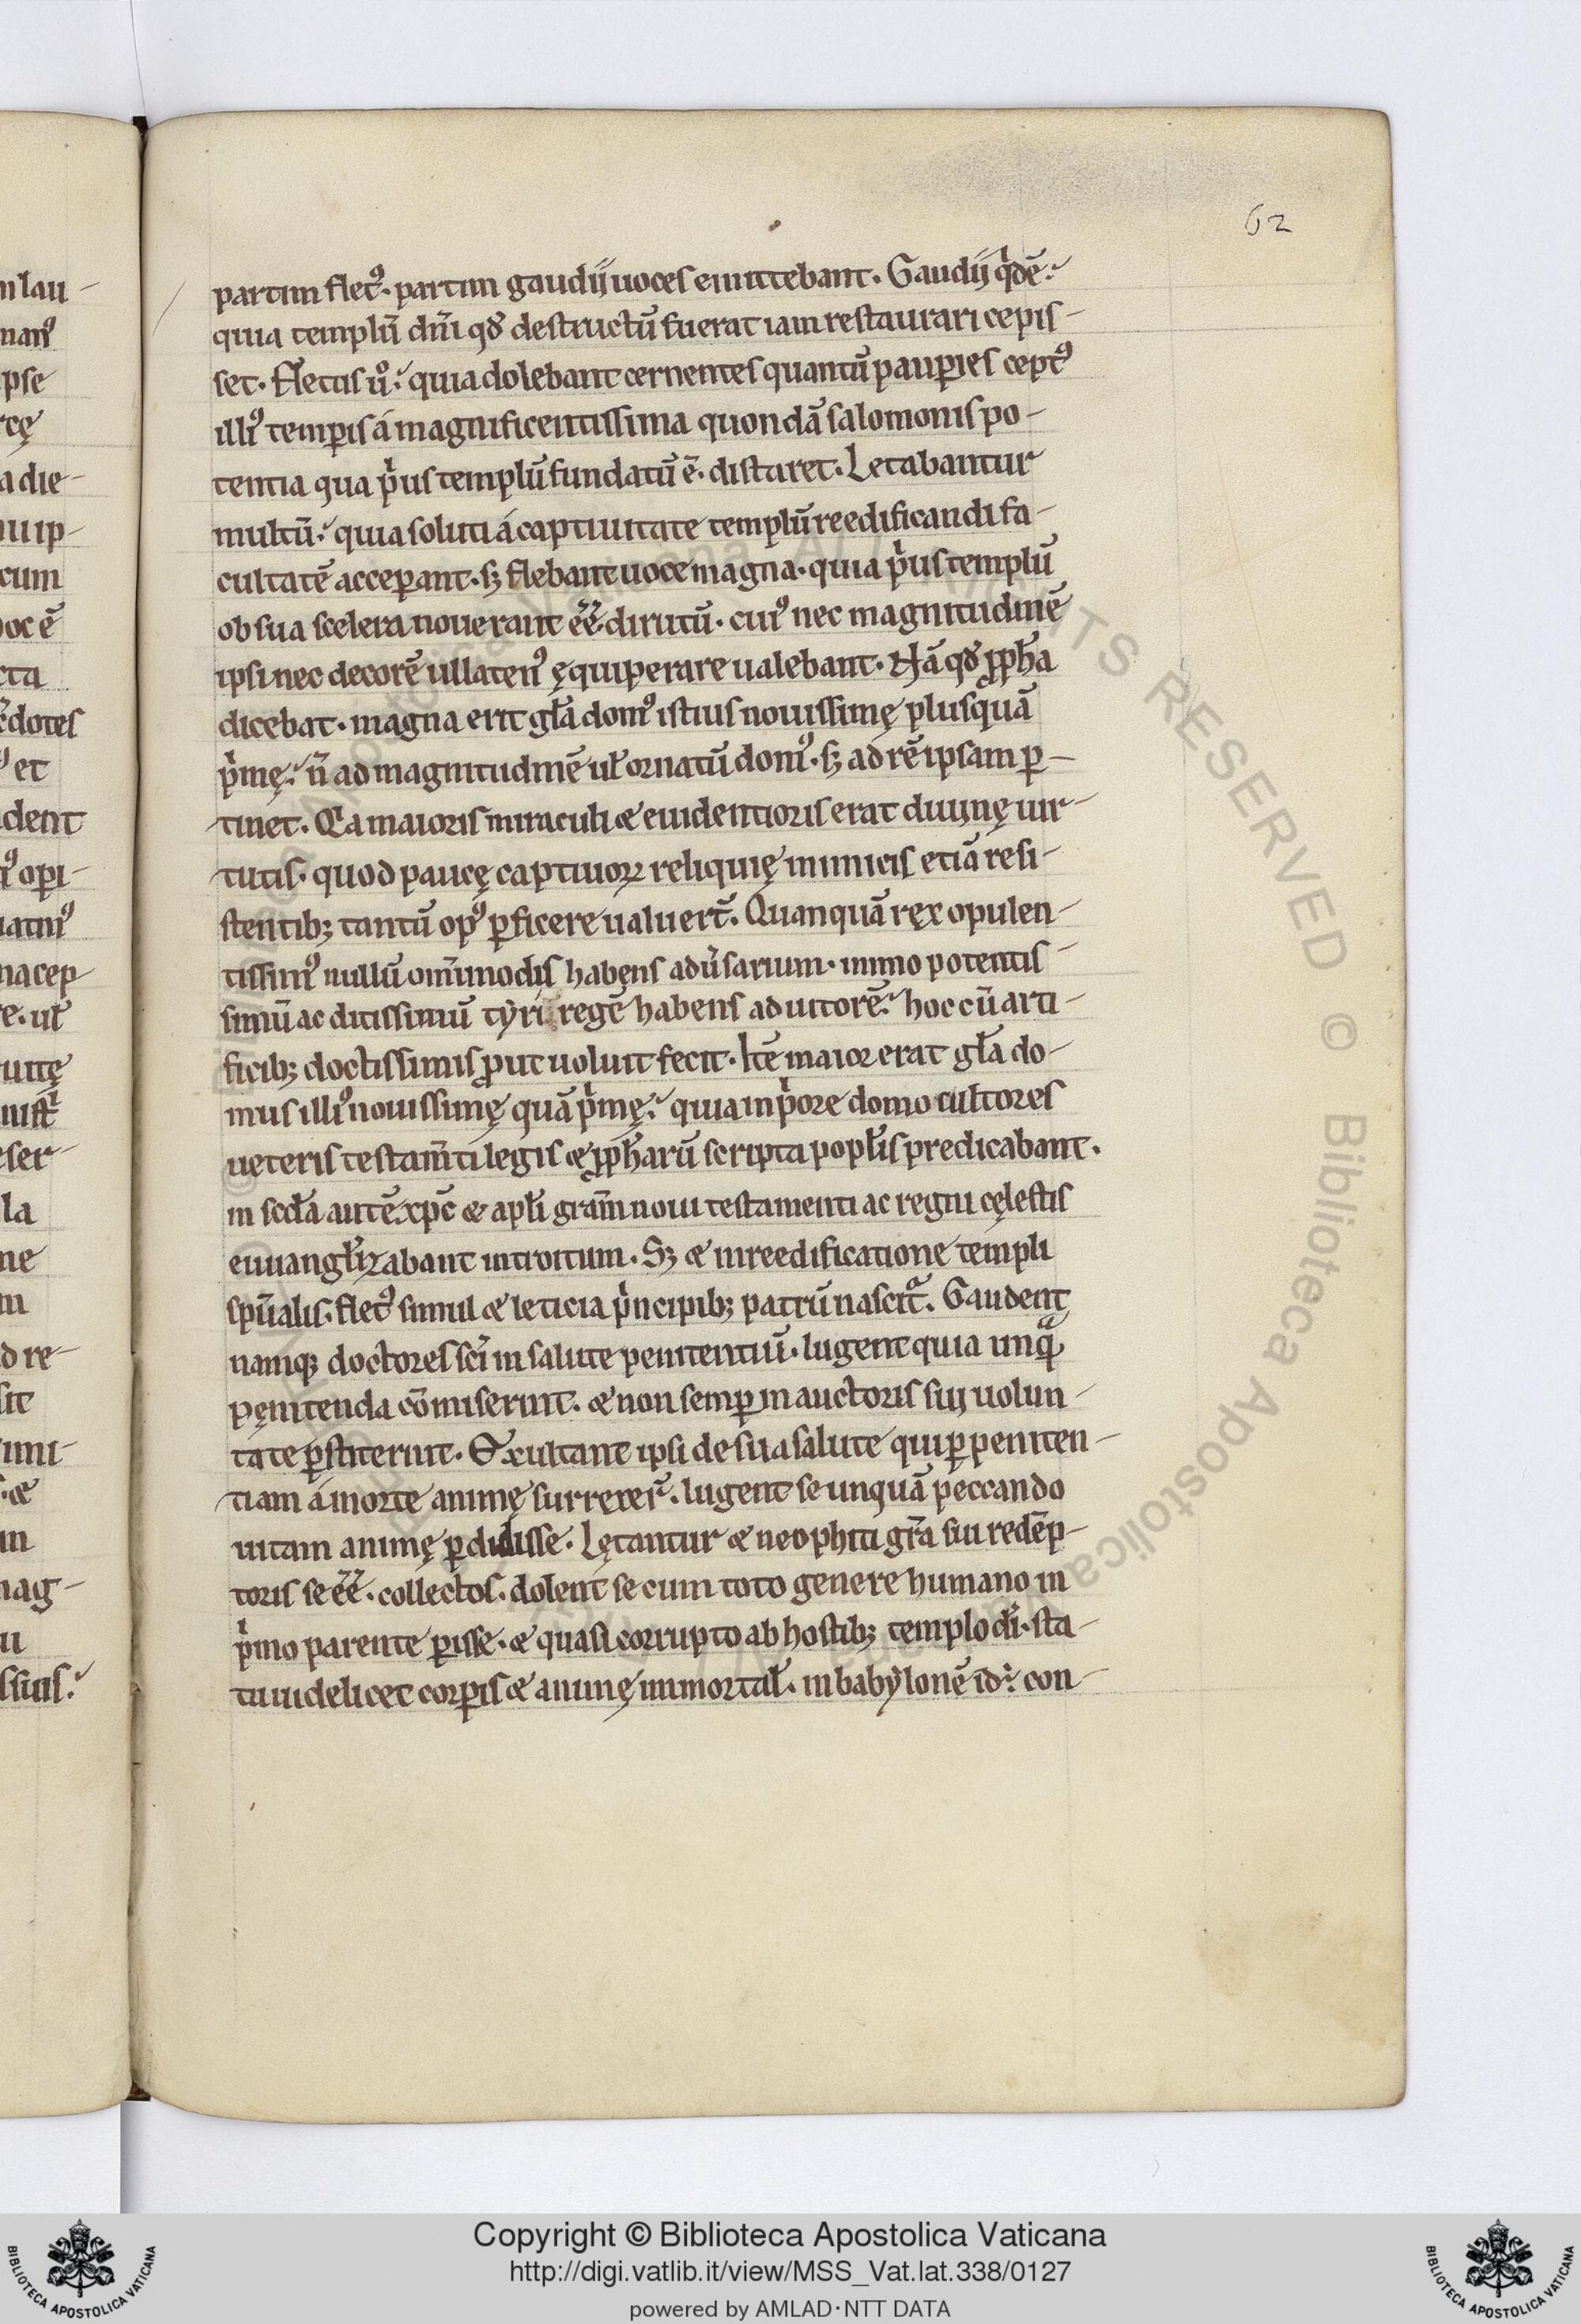 62
partim flet᷒· partim gaudij uoces emittebant. Gaudij qͥdē.
quia templū dn̄i qđ destructū fuerat iam restaurari cepis-
set. Fletus u̾o. quia dolebant cernentes quantū paup̱ies cept᷒
illi᷒ temp̱is á magnificentissima quondā salomonis po-
tentia qua pͥus templū fundatū ē. distaret. Letabantur
multū. quia soluti á captiuitate templū reedificandi fa-
cultatē accep̱ant. sꝫ flebant uoce magna. quia pͥus templū
ob sua scelera nouerant ēē dirutū. cui᷒ nec magnitudinē
ipsi nec decorē ullaten᷒ ęquiperare ualebant. Nā qđ ꝓph̄a
dicebat. magna erit gl̄a dom᷒ istius nouissimę plusquā
pͥmę. n̄ ad magnitudinē ul̄ ornatū dom᷒. sꝫ ad rē ipsam ꝑ-
tinet. Ca maioris miraculi & euidentioris erat diuinę uir-
tutis. quod paucę captiuoꝝ reliquię inimicis etiā resi-
stentibꝫ tantū op᷒ ꝑficere ualuer̄t. Quanquā rex opulen-
tissim᷒ nullū om̄imodis habens adu̾sarium. immo potentis-
simū ac ditissimū tẏri regē habens adiutorē. hoc cū arti-
ficibꝫ doctissimis ꝓut uoluit fecit. Itē maior erat gl̄a do-
mus illi᷒ nouissimę quā pͥmę. quia in pͥore domo cultores
ueteris testam̄ti legis & ꝓph̄arū scripta popl̄is predicabant.
in scd̄a autē xp̄c & apl̄i gram̄ noui testamenti ac regni cęlestis
euuangl̄izabant introitum. Sꝫ & in reedificatione templi
spūalis. flet᷒ simul & leticia pͥncipibꝫ patrū nascit᷑. Gaudent
namqꝫ doctores sc̄i in salute penitentiū. lugent quia unqͣ̄
pęnitenda cōmiserunt. & non semꝑ in auctoris sui uolun-
tate ꝑstiterunt. Exultant ipsi de sua salute qui ꝑ peniten-
tiam á morte animę surrexer̄. lugent se unquā peccando
uitam animę ꝑdidisse. Lętantur & neophiti gr̄a sui redēp-
toris se ēē. collectos. dolent se cum toto genere humano in
pͥmo parente ꝑisse. & quasi corrupto ab hostibꝫ templo di̅. sta-
tu uidelicet corꝑis & animę immortal̄. in babẏlonē id÷ con-
nlau-
nan᷒
pse
rcę
a die-
uip-
cum
oc ē
cta
dotes
et
dent
oꝑi-
uatm᷒
nacep-
e. ul̄
uitę
ser-
la
ne
m
d re-
sit
imi-
& 
in
nag-
u
ssius.
Copyright © Biblioteca Apostolica Vaticana
http://digi.vatlib.it/view/MSS_Vat.lat.338/0127
powered by AMLAD·NTT DATA
BIBLIOTECA APOSTOLICA VATICANA
BIBLIOTECA APOSTOLICA VATICANA